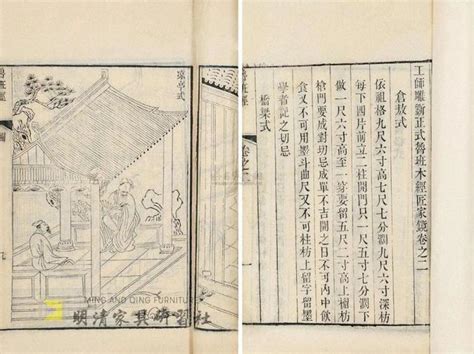 工師雕斵正式魯班木經匠家鏡卷之二
倉敖式
依祖格九尺六寸高七尺七分闊九尺六寸深枋
每下四片前立二柱開門只一尺五寸七分闊下
做一尺六寸高至一穿要留五尺二寸高上楣枋
槍門要成對切忌成單不吉開之日不可內中飲
食又不可用墨斗曲尺又不可柱枋上留字留墨
學者記之切忌
橋梁式
魯班經
卷之二
涼亭式
魯班經
MING AND QING FURNITURE
明清家具研習社